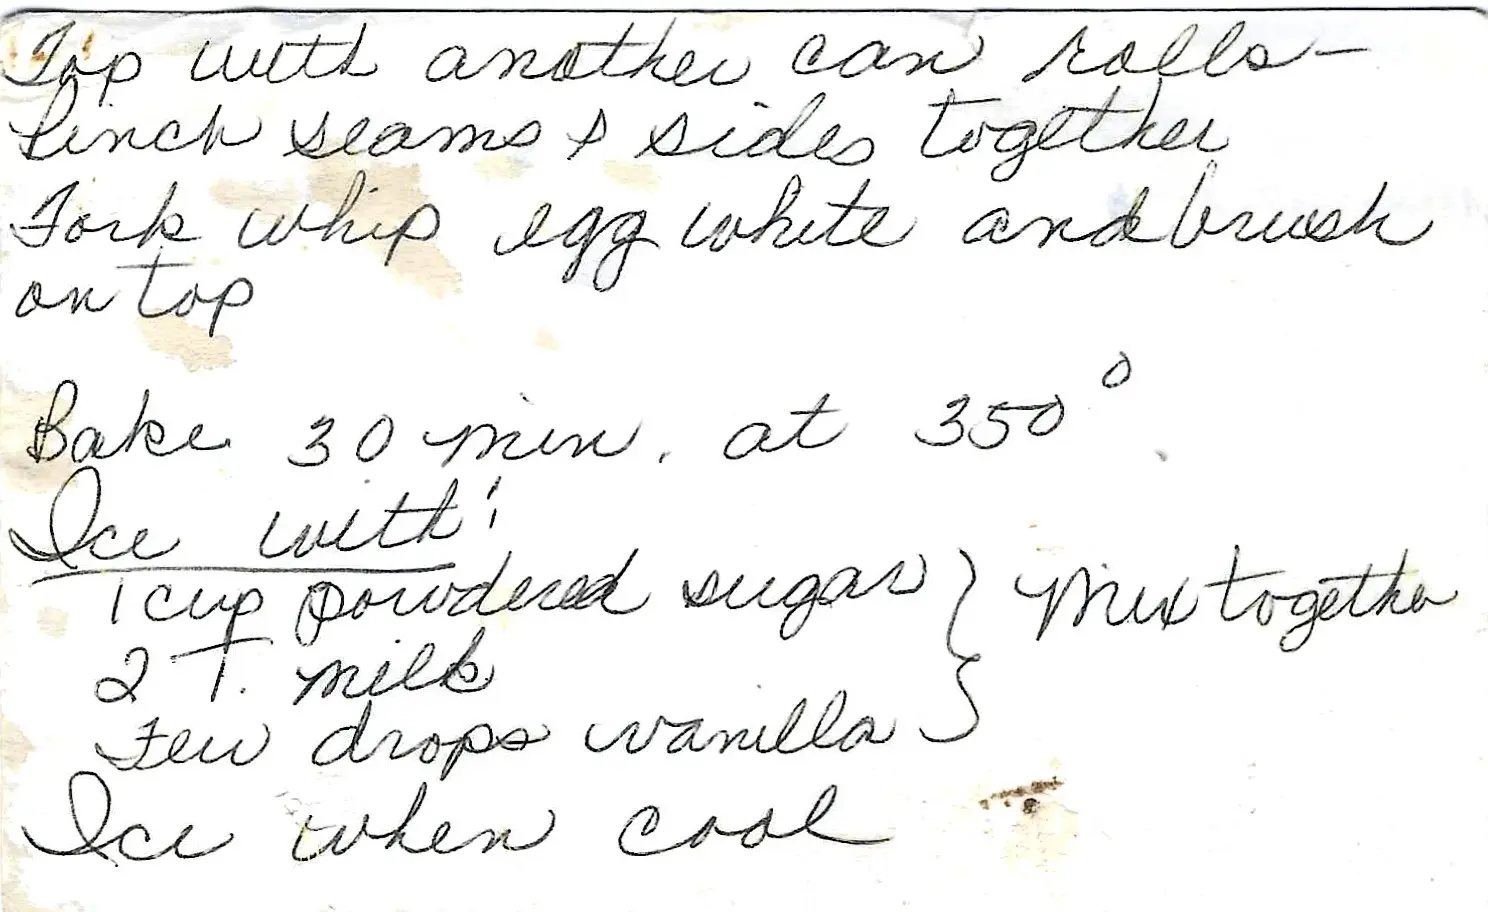 Top with another can rolls—
Pinch seams & sides together
Fork whip egg white and brush
on top
Bake 30 min. at 350°.
Ice with:
1 cup powdered sugar } Mix together
2 T. milk
Few drops vanilla
Ice when cool